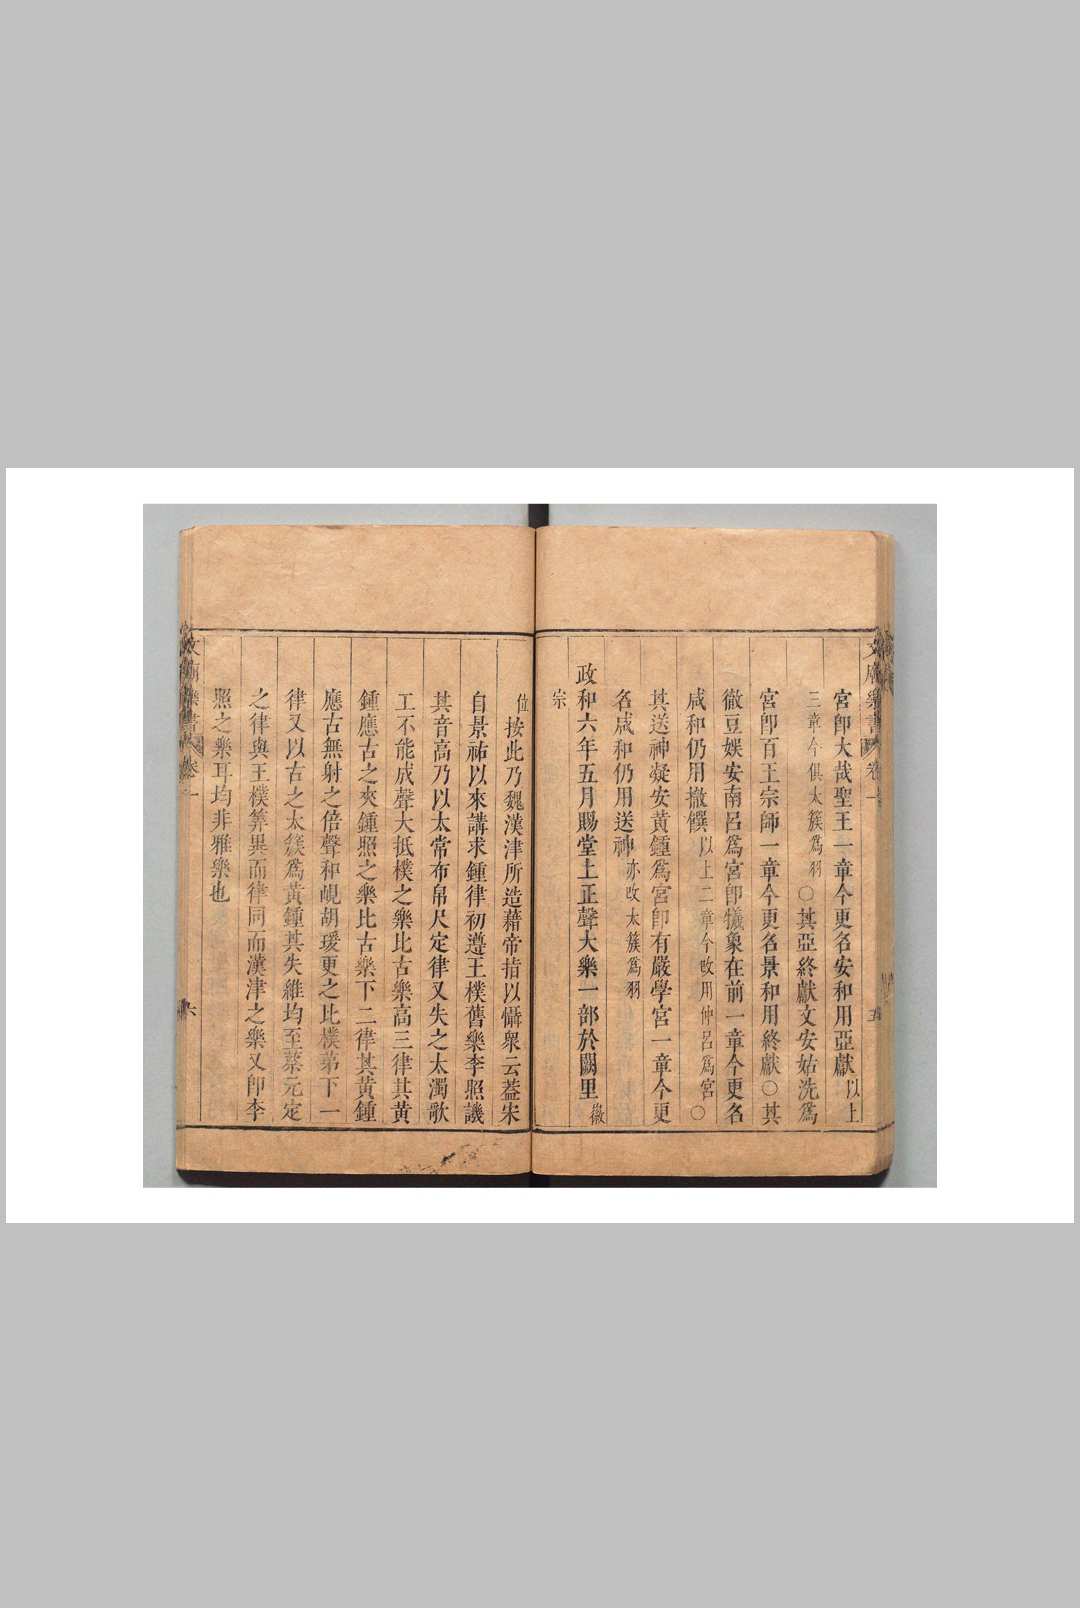 文廟樂書 卷一 五
宮卽大哉聖王一章今更名安和用亞獻以上
三章今俱太簇爲羽〇其亞終獻文安姑洗爲
宮卽百王宗師一章今更名景和用終獻〇其
徹豆娛安南呂爲宮卽犧象在前一章今更名
咸和仍用撤饌以上二章今改用仲呂爲宮〇
其送神凝安黃鍾爲宮卽有嚴學宮一章今更
名咸和仍用送神亦改太簇爲羽
政和六年五月賜堂上正聲大樂一部於闕里徽
宗
位
按此乃魏漢津所造藉帝指以懾衆云蓋宋
自景祐以來講求鍾律初遵王樸舊樂李照譏
其音高乃以太常布帛尺定律又失之太濁歌
工不能成聲大抵樸之樂比古樂高三律其黃
鍾應古之夾鍾照之樂比古樂下二律其黃鍾
應古無射之倍聲和峴胡瑗更之比樸第下一
律又以古之太簇爲黃鍾其失維均至蔡元定
之律與王樸筭異而律同而漢津之樂又卽李
照之樂耳均非雅樂也
文廟樂書 卷一 六